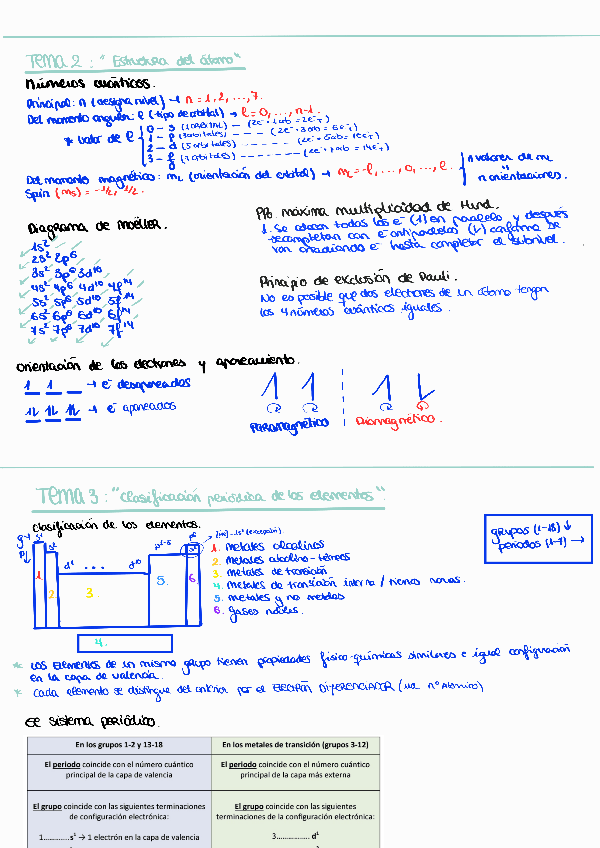 TEMA 2 : "Estructura del átomo"
Números cuánticos.
Principal: n (designa nivel) → n = 1, 2, ..., 7.
Del momento angular: l (tipo de orbital) → l = 0, ..., n-1.
* valor de l
0 - s (1 orbital) ---- (2e⁻ · 1 orb = 2e⁻T)
1 - p (3 orbitales) ---- (2e⁻ · 3 orb = 6e⁻T)
2 - d (5 orbitales) ------ (2e⁻ · 5 orb = 10e⁻T)
3 - f (7 orbitales) ------- (2e⁻ · 7 orb = 14e⁻T)
Del momento magnético: mL (orientación del orbital) → mL = -l, ..., 0, ..., l
n valores de mL
n orientaciones.
Spin (ms) = -1/2, 1/2.
Diagrama de Moeller.
1s²
2s² 2p⁶
3s² 3p⁶ 3d¹⁰
4s² 4p⁶ 4d¹⁰ 4f¹⁴
5s² 5p⁶ 5d¹⁰ 5f¹⁴
6s² 6p⁶ 6d¹⁰ 6f¹⁴
7s² 7p⁶ 7d¹⁰ 7f¹⁴
Ppo. máxima multiplicidad de Hund.
1. Se colocan todos los e⁻ (1) en paralelo y después
se completan con e⁻ antiparalelos (1) conforme se
van añadiendo e⁻ hasta completar el subnivel.
Principio de exclusión de Pauli.
No es posible que dos electrones de un átomo tengan
los 4 números cuánticos iguales.
Orientación de los electrones y apareamiento.
→ e⁻ desapareados
→ e⁻ apareados
Paramagnético
Diamagnético.
TEMA 3 : "Clasificación periódica de los elementos".
Clasificación de los elementos.
g→
p↓
s¹
s²
d¹ ... d¹⁰
p¹⁻⁵
p⁶
s²
→ [He] → 1s² (excepción)
1.
2.
3.
4.
5.
6.
1. metales alcalinos
2. metales alcalino-térreos
3. metales de transición
4. metales de transición interna / tierras raras.
5. metales y no metales
6. gases nobles.
grupos (1-18) ↓
periodos (1-7) →
* Los elementos de un mismo grupo tienen propiedades físico-químicas similares e igual configuración
en la capa de valencia.
* Cada elemento se distingue del anterior por el ELECTRÓN DIFERENCIADOR (un nº atómico)
sistema periódico.
En los grupos 1-2 y 13-18
En los metales de transición (grupos 3-12)
El periodo coincide con el número cuántico
principal de la capa de valencia
El periodo coincide con el número cuántico
principal de la capa más externa
El grupo coincide con las siguientes terminaciones
de configuración electrónica:
El grupo coincide con las siguientes
terminaciones de la configuración electrónica:
1.............s¹ → 1 electrón en la capa de valencia
3................ d¹